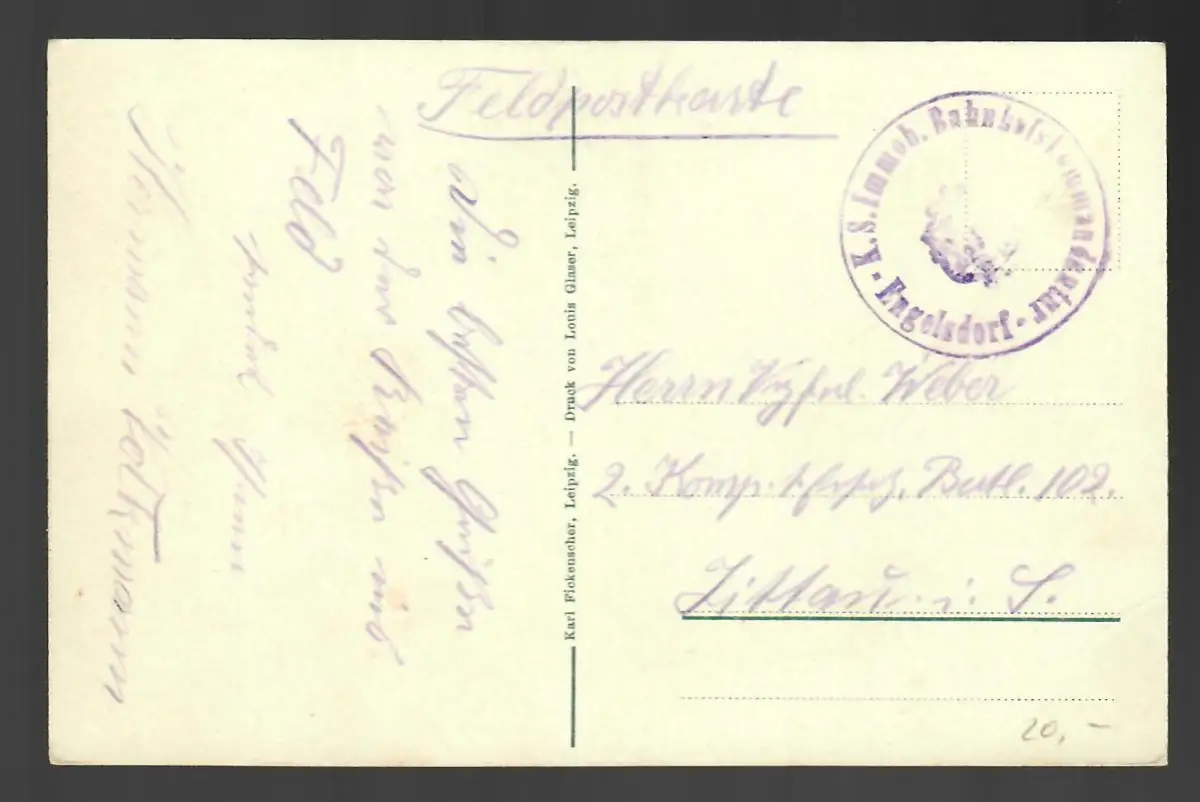 Feldpostkarte
K.S. Immob. Bahnhofskommandantur
- Engelsdorf -
Die besten Grüßen
von der Reise ins
Feld
sendet Ihnen
Hermann
Karl Fickenscher, Leipzig. — Druck von Louis Glaser, Leipzig.
Herrn Vzfwl. Weber
2. Komp. Ersatz. Batl. 102.
Zittau i. S.
20,-